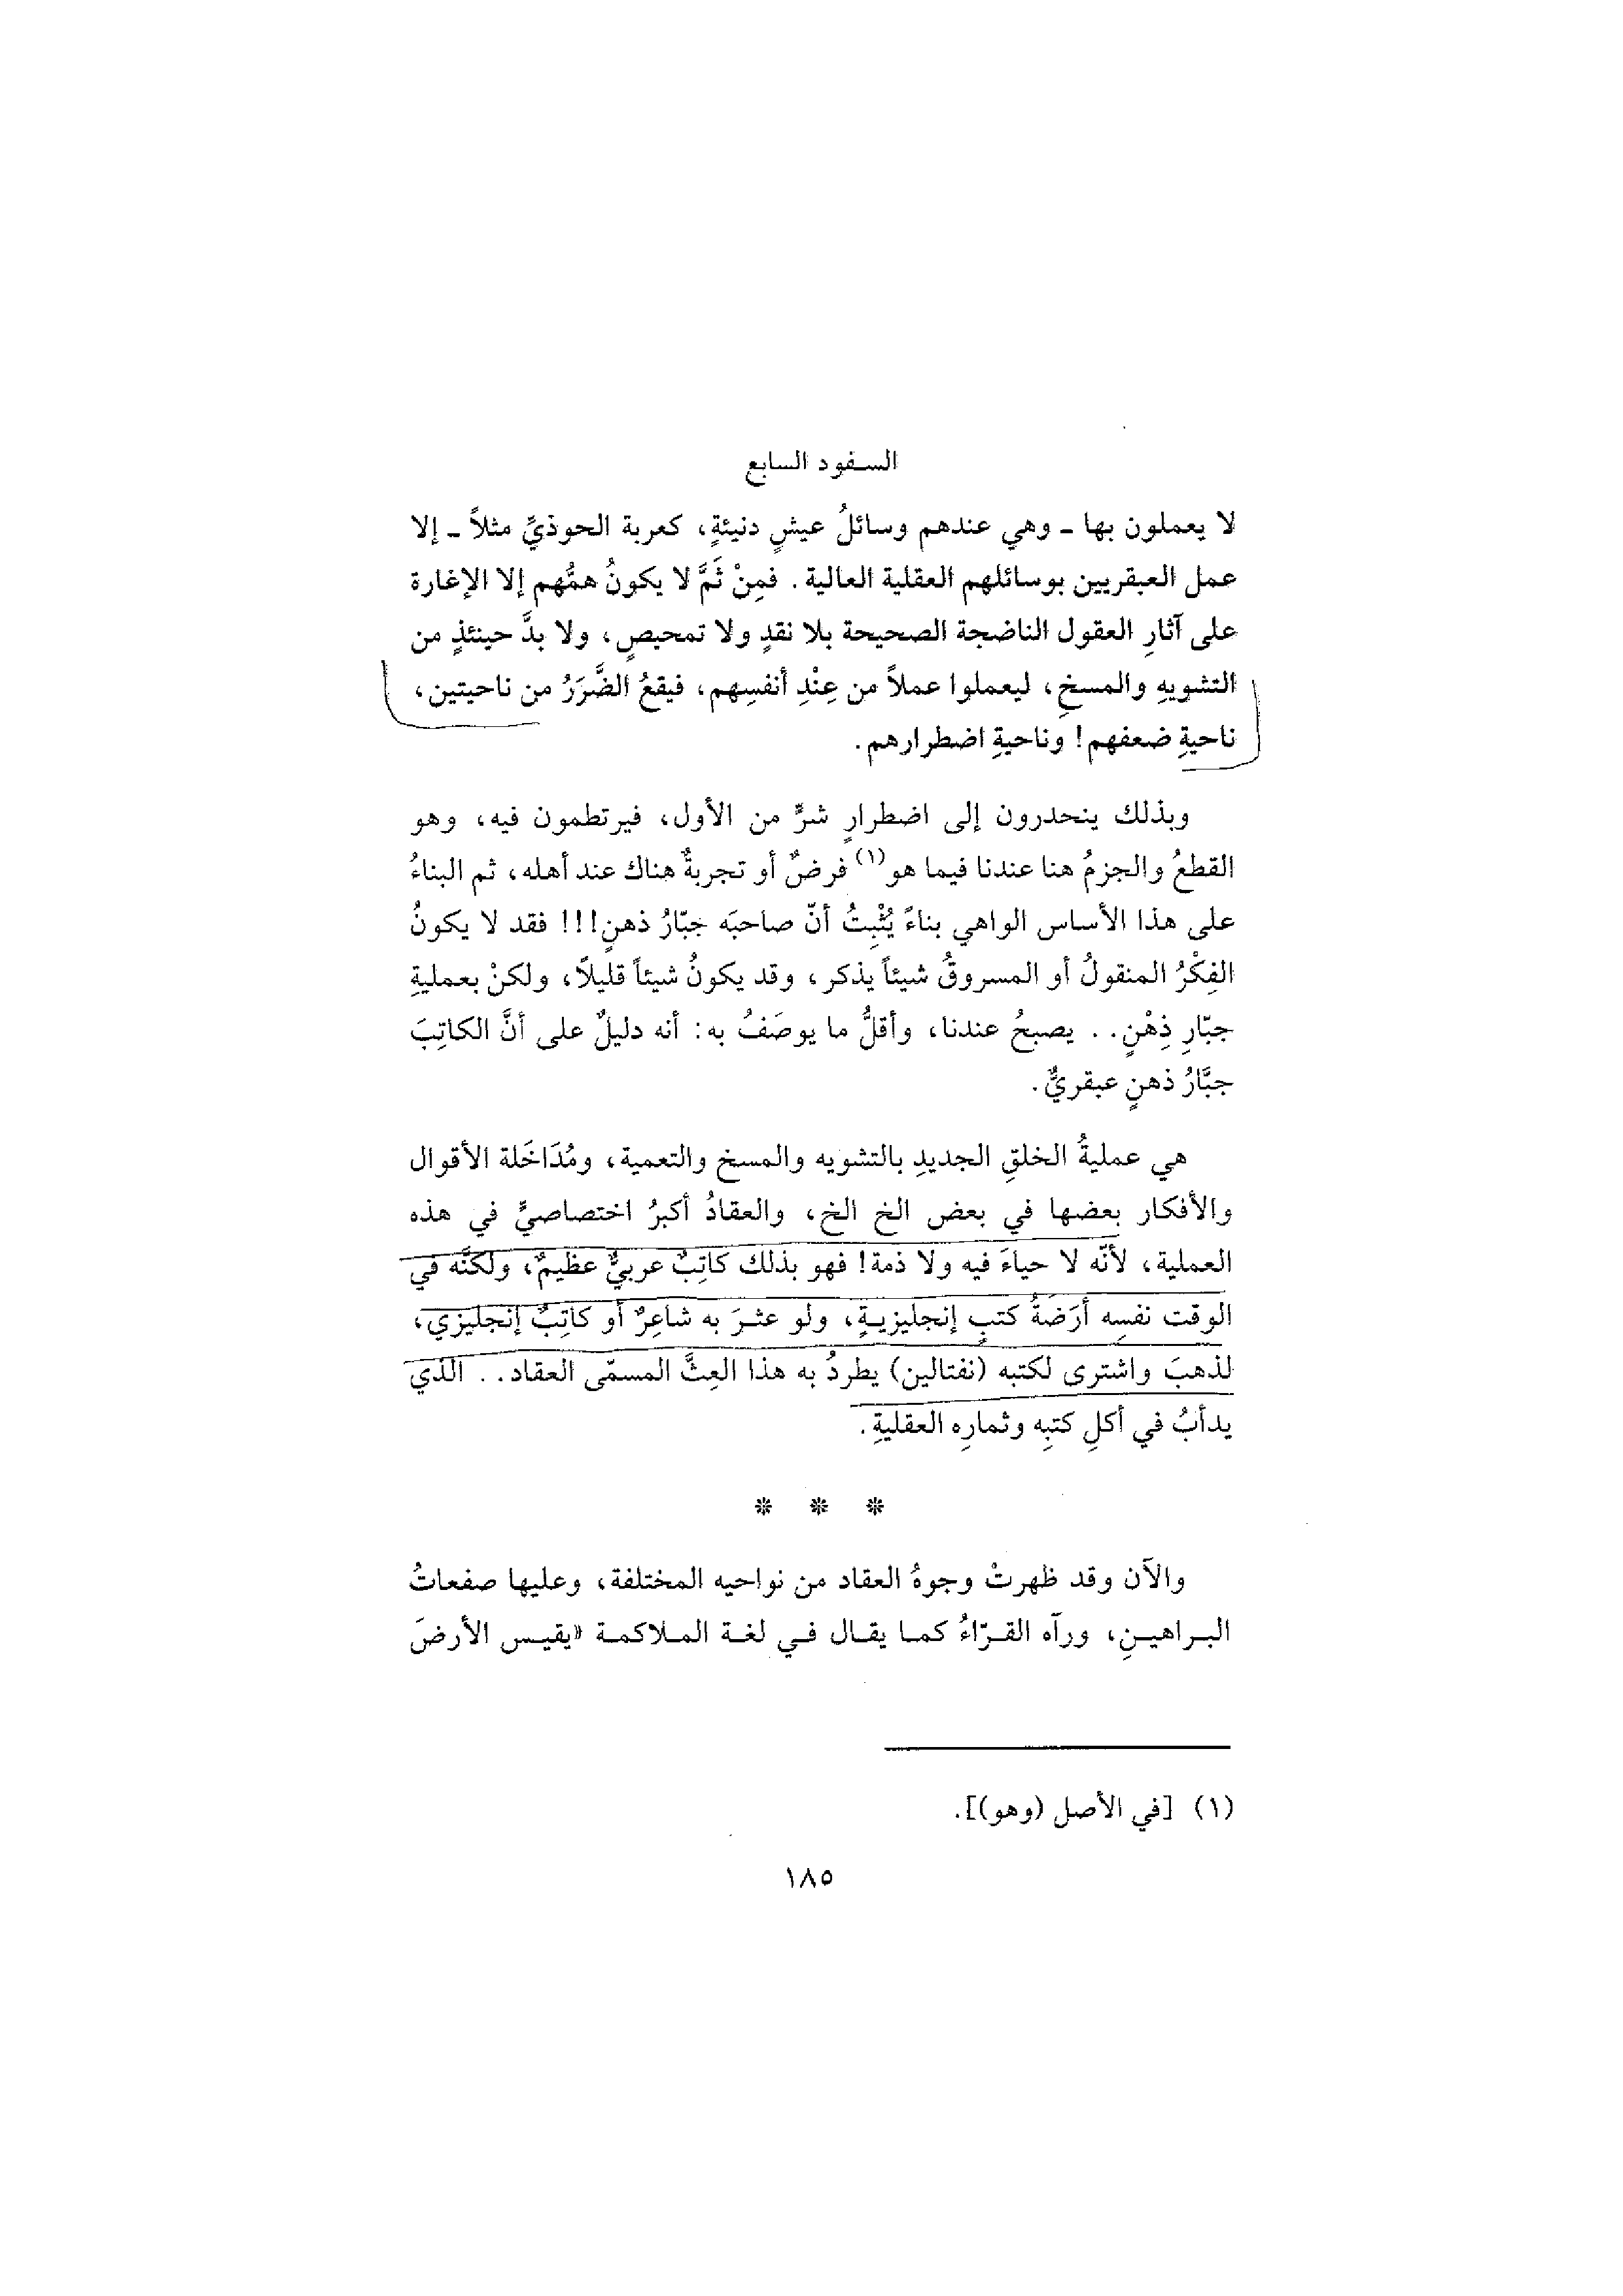 السفود السابع
لا يعملون بها - وهي عندهم وسائلُ عيشٍ دنيئةٍ، كعربة الحوذيِّ مثلاً - إلا
عمل العبقريين بوسائلهم العقلية العالية. فمِنْ ثَمَّ لا يكونُ همُّهم إلا الإغارة
على آثارِ العقول الناضجة الصحيحة بلا نقدٍ ولا تمحيصٍ، ولا بدَّ حينئذٍ من
التشويهِ والمسخِ، ليعملوا عملاً من عِنْدِ أنفسِهم، فيقعُ الضَّرَرُ من ناحيتين،
ناحيةِ ضعفهم! وناحيةِ اضطرارهم.
وبذلك ينحدرون إلى اضطرارٍ شرٍّ من الأول، فيرتطمون فيه، وهو
القطعُ والجزمُ هنا عندنا فيما هو(١) فرضٌ أو تجربةٌ هناك عند أهله، ثم البناءُ
على هذا الأساس الواهي بناءً يُثْبِتُ أنّ صاحبَه جبّارُ ذهنٍ!!! فقد لا يكونُ
الفِكْرُ المنقولُ أو المسروقُ شيئاً يذكر، وقد يكونُ شيئاً قليلاً، ولكنْ بعمليةِ
جبّارِ ذِهْنٍ.. يصبحُ عندنا، وأقلُّ ما يوصَفُ به: أنه دليلٌ على أنَّ الكاتِبَ
جبَّارُ ذهنٍ عبقريٌّ.
هي عمليةُ الخلقِ الجديدِ بالتشويه والمسخ والتعمية، ومُدَاخَلة الأقوال
والأفكار بعضها في بعض الخ الخ، والعقادُ أكبرُ اختصاصيٍّ في هذه
العملية، لأنّه لا حياءَ فيه ولا ذمة! فهو بذلك كاتِبٌ عربيٌّ عظيمٌ، ولكنَّه في
الوقت نفسِه أرَضَةُ كتبٍ إنجليزيةٍ، ولو عثرَ به شاعِرٌ أو كاتِبٌ إنجليزي،
لذهبَ واشترى لكتبه (نفتالين) يطردُ به هذا العِثَّ المسمّى العقاد.. الذي
يدأبُ في أكلِ كتبِه وثمارِه العقليةِ.
* * *
والآن وقد ظهرتْ وجوهُ العقاد من نواحيه المختلفة، وعليها صفعاتُ
البراهينِ، ورآه القرّاءُ كما يقال في لغة الملاكمة «يقيس الأرضَ
(١) [في الأصل (وهو)].
١٨٥